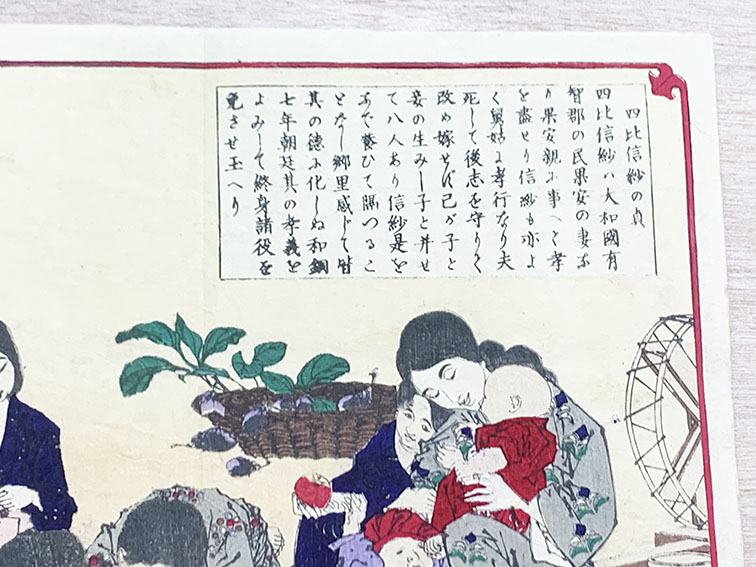 四比信紗の貞
四比信紗ハ大和國有
智郡の民果安の妻な
り果安親に事へて孝
を盡せり信紗も亦よ
く舅姑に孝行なり夫
死して後志を守りて
改め嫁せず己が子と
妾の生みし子と并せ
て八人あり信紗是を
あで養ひて隔つるこ
となし郷里感じて皆
其の徳に化しぬ和銅
七年朝廷其の孝義を
よみして終身諸役を
免させ玉へり